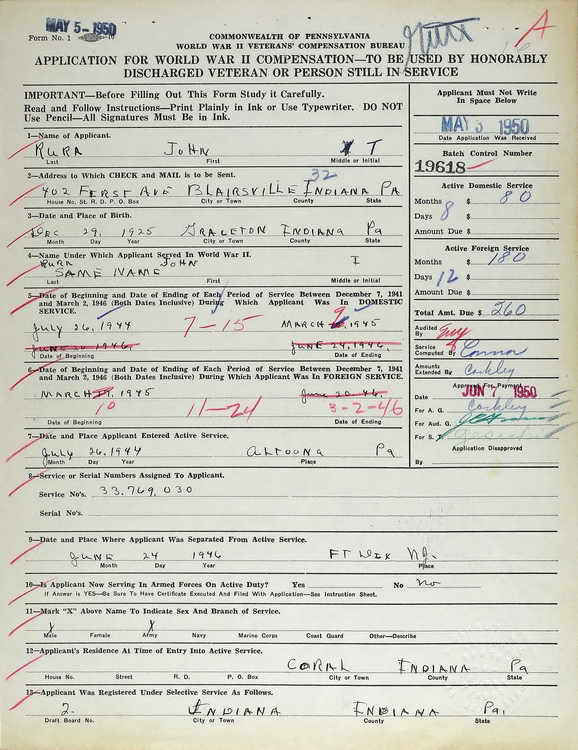 MAY 5 - 1950
Form No. 1
COMMONWEALTH OF PENNSYLVANIA
WORLD WAR II VETERANS' COMPENSATION BUREAU
A
APPLICATION FOR WORLD WAR II COMPENSATION—TO BE USED BY HONORABLY
DISCHARGED VETERAN OR PERSON STILL IN SERVICE
IMPORTANT—Before Filling Out This Form Study it Carefully.
Read and Follow Instructions—Print Plainly in Ink or Use Typewriter. DO NOT
Use Pencil—All Signatures Must be in Ink.
Applicant Must Not Write
In Space Below
MAY 5 1950
Date Application Was Received
Batch Control Number
19618
1—Name of Applicant.
RURA JOHN I
Last First Middle or Initial
2—Address to Which CHECK and MAIL is to be Sent.
32
402 FERST AVE BLAIRSVILLE INDIANA PA
House No. St. R. D. P. O. Box City or Town County State
3—Date and Place of Birth.
DEC 29, 1925 GRACETON INDIANA Pa
Month Day Year City or Town County State
4—Name Under Which Applicant Served In World War II.
RURA JOHN I
SAME NAME
Last First Middle or Initial
5—Date of Beginning and Date of Ending of Each Period of Service Between December 7, 1941
and March 2, 1946 (Both Dates Inclusive) During Which Applicant Was In DOMESTIC
SERVICE.
9
July 26, 1944 7-15 MARCH 1945
JUNE 20 1946, JUNE 24, 1946,
Date of Beginning Date of Ending
6—Date of Beginning and Date of Ending of Each Period of Service Between December 7, 1941
and March 2, 1946 (Both Dates Inclusive) During Which Applicant Was In FOREIGN SERVICE.
MARCH 1945 June 20-46,
10 11-24 3-2-46
Date of Beginning Date of Ending
7—Date and Place Applicant Entered Active Service.
July 26, 1944 ALTOONA Pa
Month Day Year Place
8—Service or Serial Numbers Assigned To Applicant.
Service No's. 33,769,030
Serial No's.
9—Date and Place Where Applicant Was Separated From Active Service.
JUNE 24 1946 FT DIX N.J.
Month Day Year Place
10—Is Applicant Now Serving In Armed Forces On Active Duty? Yes No No
If Answer is YES—Be Sure To Have Certificate Executed And Filed With Application—See Instruction Sheet.
11—Mark "X" Above Name To Indicate Sex And Branch of Service.
X X
Male Female Army Navy Marine Corps Coast Guard Other—Describe
12—Applicant's Residence At Time of Entry Into Active Service.
CORAL INDIANA Pa
House No. Street R. D. P. O. Box City or Town County State
13—Applicant Was Registered Under Selective Service As Follows.
2. INDIANA INDIANA Pa.
Draft Board No. City or Town County State
Active Domestic Service
Months $ 80
Days 8 $
Amount Due $
Active Foreign Service
Months $ 180
Days 12 $
Amount Due $
Total Amt. Due $ 260
Audited By
Service Computed By Connor
Amounts Extended By Coakley
Approved For Payment
Date JUN 7 1950
For A. G. Coakley
For Aud. G.
For S. T.
Application Disapproved
By